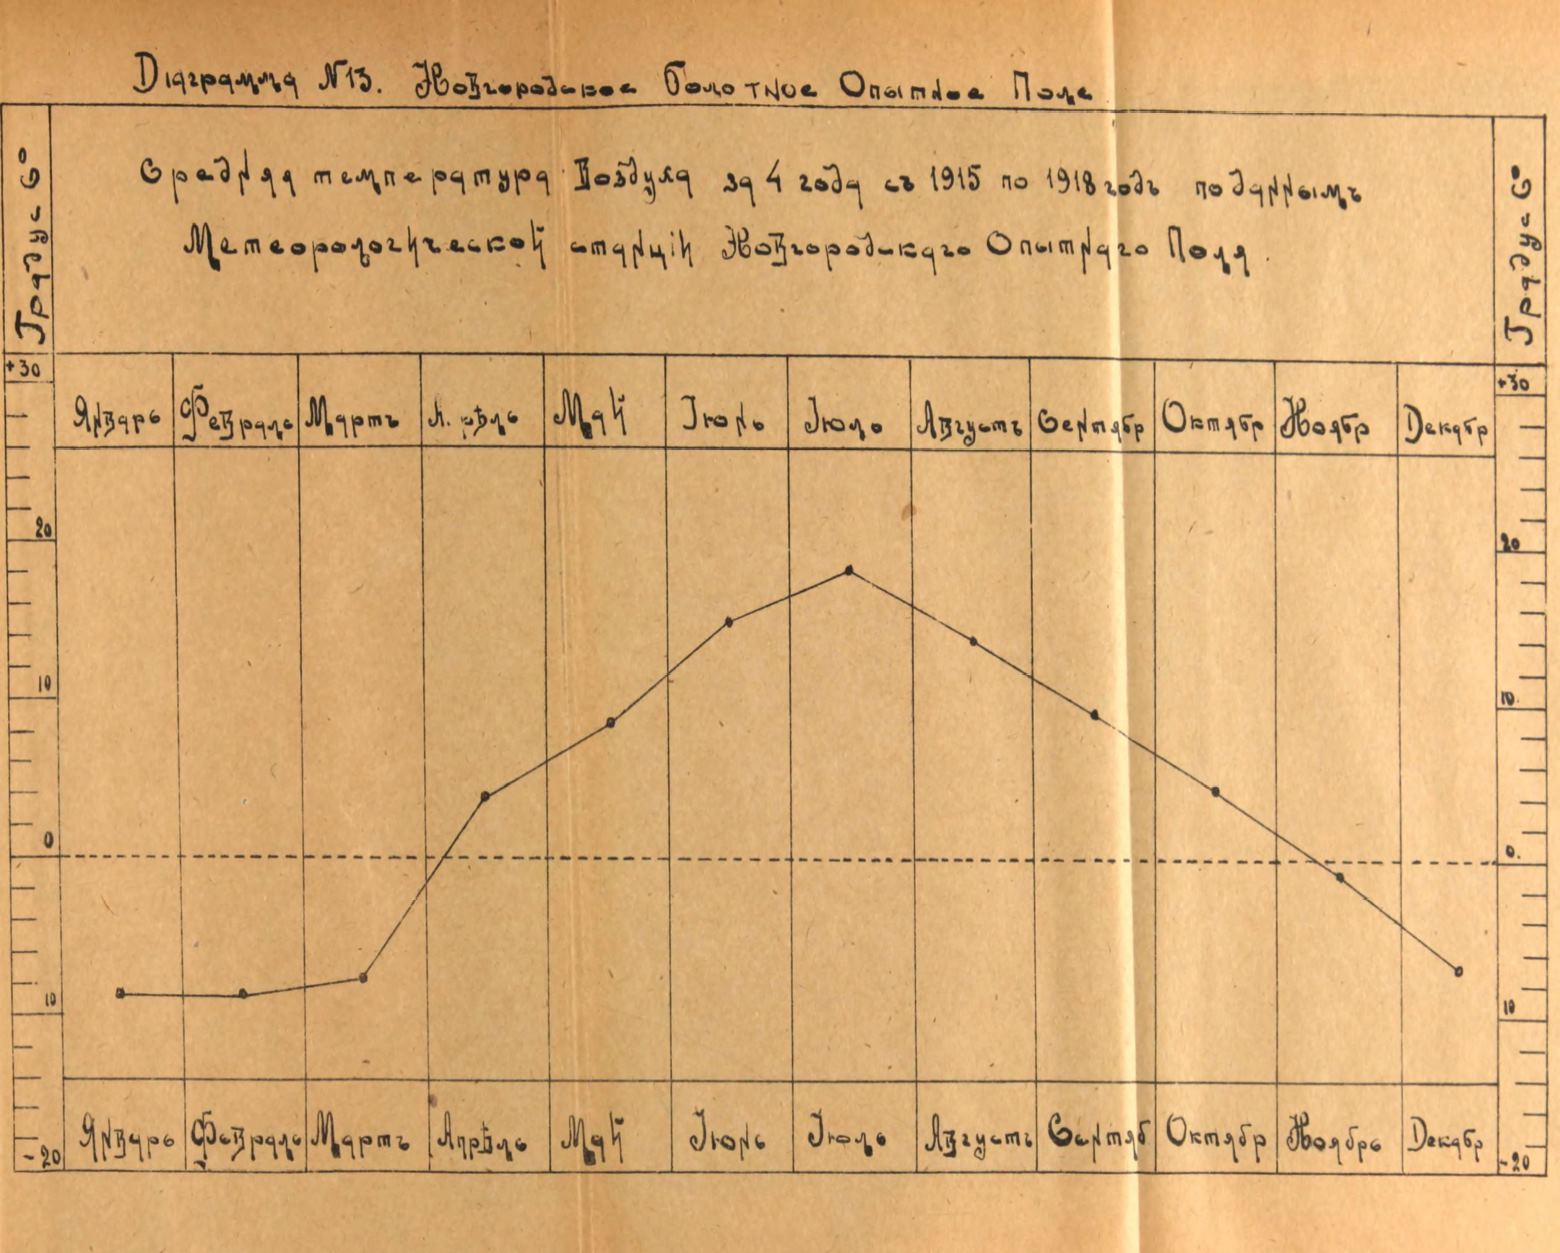 Діаграмма N13. Новгородское Болотное Опытное Поле
Средняя температура Воздуха за 4 года съ 1915 по 1918 годъ по даннымъ
Метеорологической станціи Новгородскаго Опытнаго Поля.
Градус С°
Градус С°
+30
+30
Январь Февраль Мартъ А.рѣль Май Іюнь Іюль Августъ Сентябр Октябр Ноябр Декабр
20
20
10
10
0
0.
10
10
Январь Февраль Мартъ Апрѣль Май Іюнь Іюль Августъ Сентяб Октябр Ноябрь Декабр
-20
-20